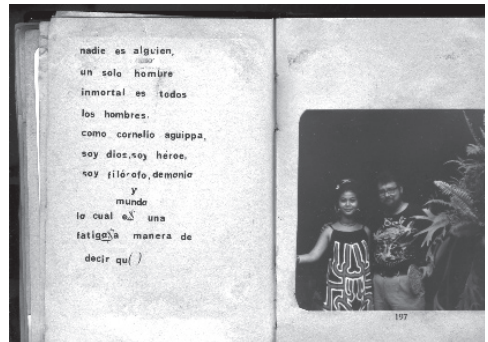 nadie es alguien,
un solo hombre
inmortal es todos
los hombres.
como cornelio aguippa,
soy dios,soy héroe,
soy filósofo,demonio
y
mundo
lo cual es una
fatigosa manera de
decir qu( )
197